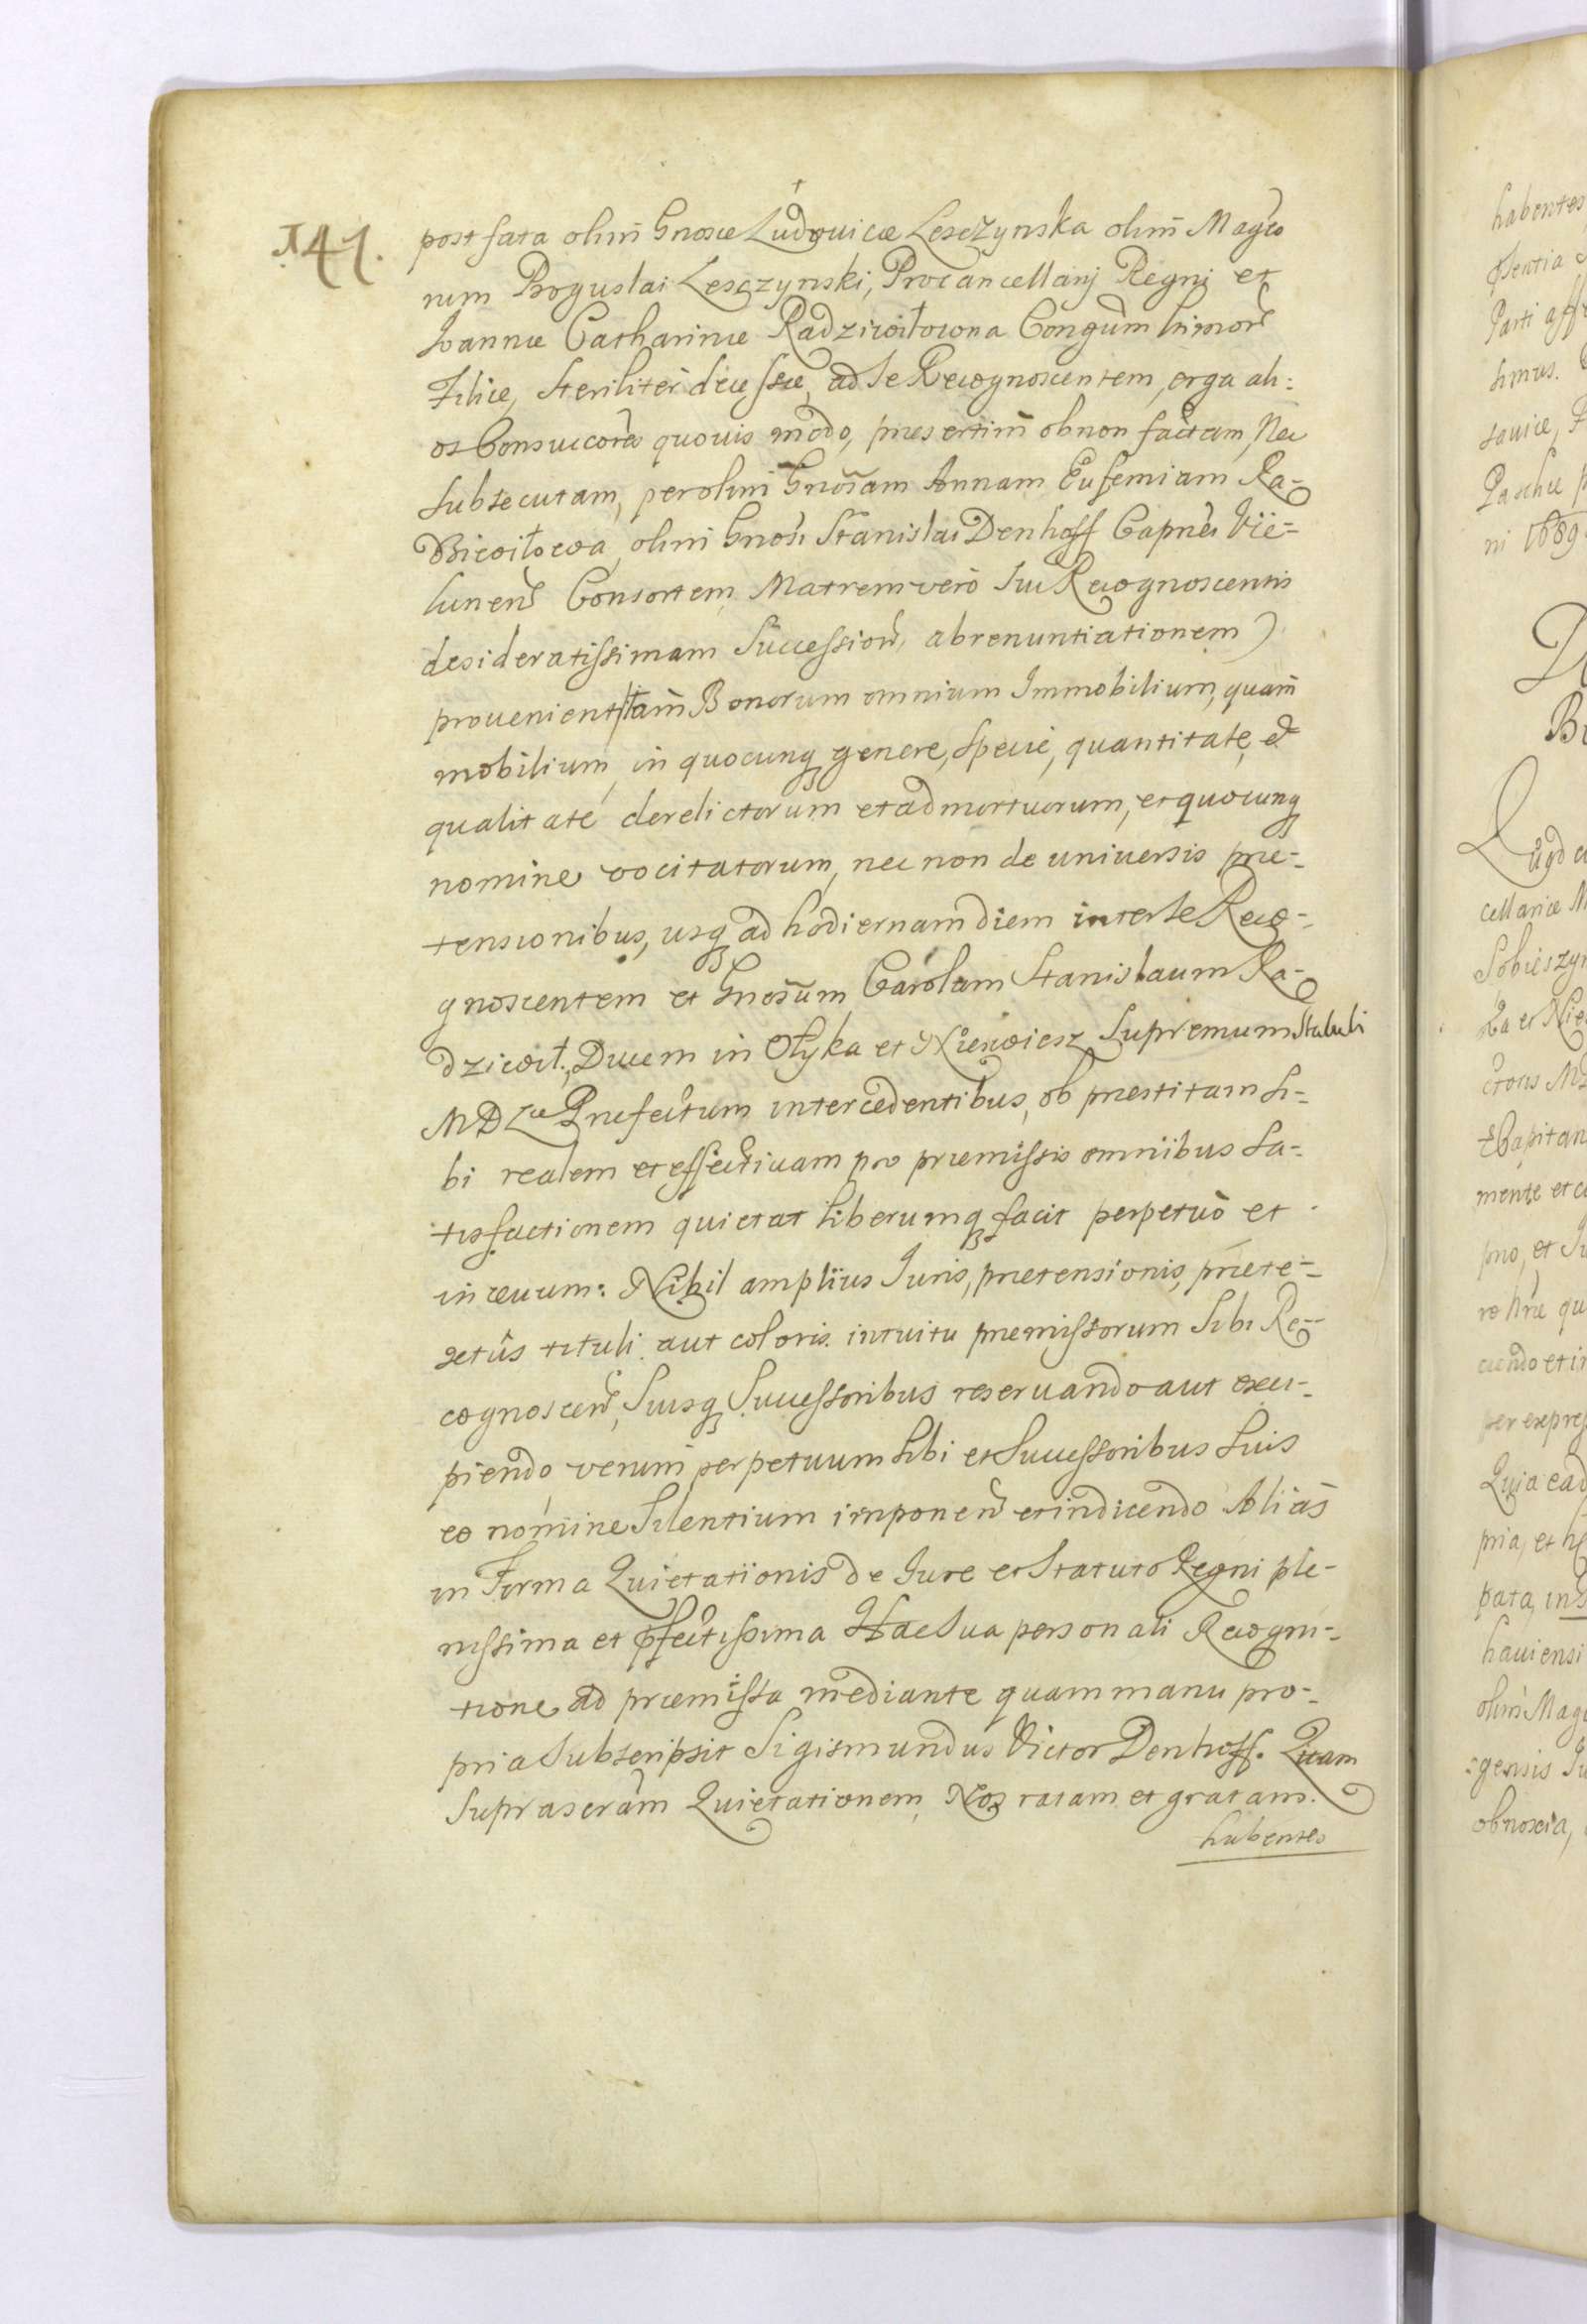 141.
post fata olim̄ Gnosæ Ludovicæ Lesczynska olim̄ Magco
rum Boguslai Lesczynski, Procancellarij Regni et
Joannæ Catharinæ Radziwiłowona Congum
Filiæ, steriliter decessæ, ad se Recognoscentem, erga ali:
os Consuccores quovis modo, præsertim̄ ob non factam, Nec
subsecutam, per olim̄ Gnos̄am Annam Eufemiam Ra-
Dziwiłowa, olim Gnosi Stanislai Denhoff Capnei Vie-
lunen Consortem, Matrem verò sui Recognoscentis
desideratissimam Succession, abrenuntiationem)
provenient tam̄ Bonorum omnium Immobilium, quam̄
mobilium, in quocunq genere, specie, quantitate, et
qualitate derelictorum et admortuorum, et quocunq
nomine vocitatorum, nec non de universis præ-
tensionibus, usq ad hodiernam diem inter se Reco-
gnoscentem et Gnosūm Carolum Stanislaum Ra-
dziwił, Ducem in Ołyka et Nieswiesz Supremum Stabuli
M D L̲æ Præfectum intercedentibus, ob præstitam si-
bi realem et effectivam pro præmissis omnibus sa-
tisfactionem quietat liberumq facit perpetuò et
in ævum: Nihil amplius Juris, prætensionis, præte-
xtûs tituli aut coloris intuitu præmissorum Sibi Re-
cognoscen, Suisq Successoribus reservando aut exci-
piendo, verum perpetuum sibi et Successoribus suis
eo nómine Silentium imponen et indicendo Aliās
in Forma Quietationis de Jure et Statuto Regni ple-
nissima et pfectissima Hac Sua personali Recogni-
tione ad præmissa mediante quam manu pro-
pria Subscripsit Sigismundus Victor Denhoff. Quam
supraseram̄ Quietationem, Nos ratam et gratam.
habentes